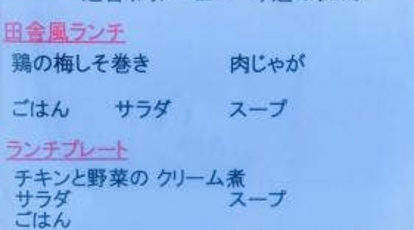 田舎風ランチ
鶏の梅しそ巻き 肉じゃが
ごはん サラダ スープ
ランチプレート
チキンと野菜の クリーム煮
サラダ スープ
ごはん